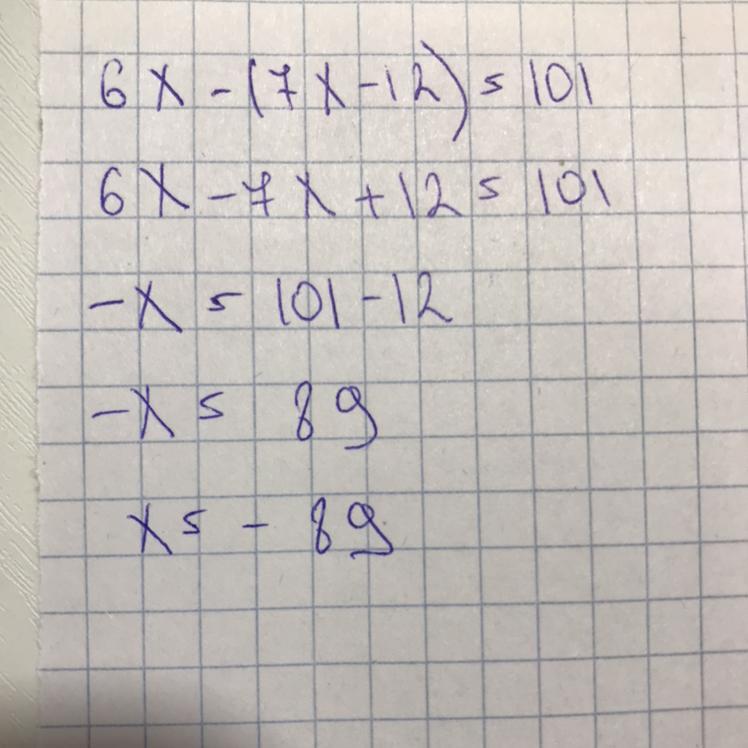 6x - (7x - 12) = 101
6x - 7x + 12 = 101
-x = 101 - 12
-x = 89
x = - 89